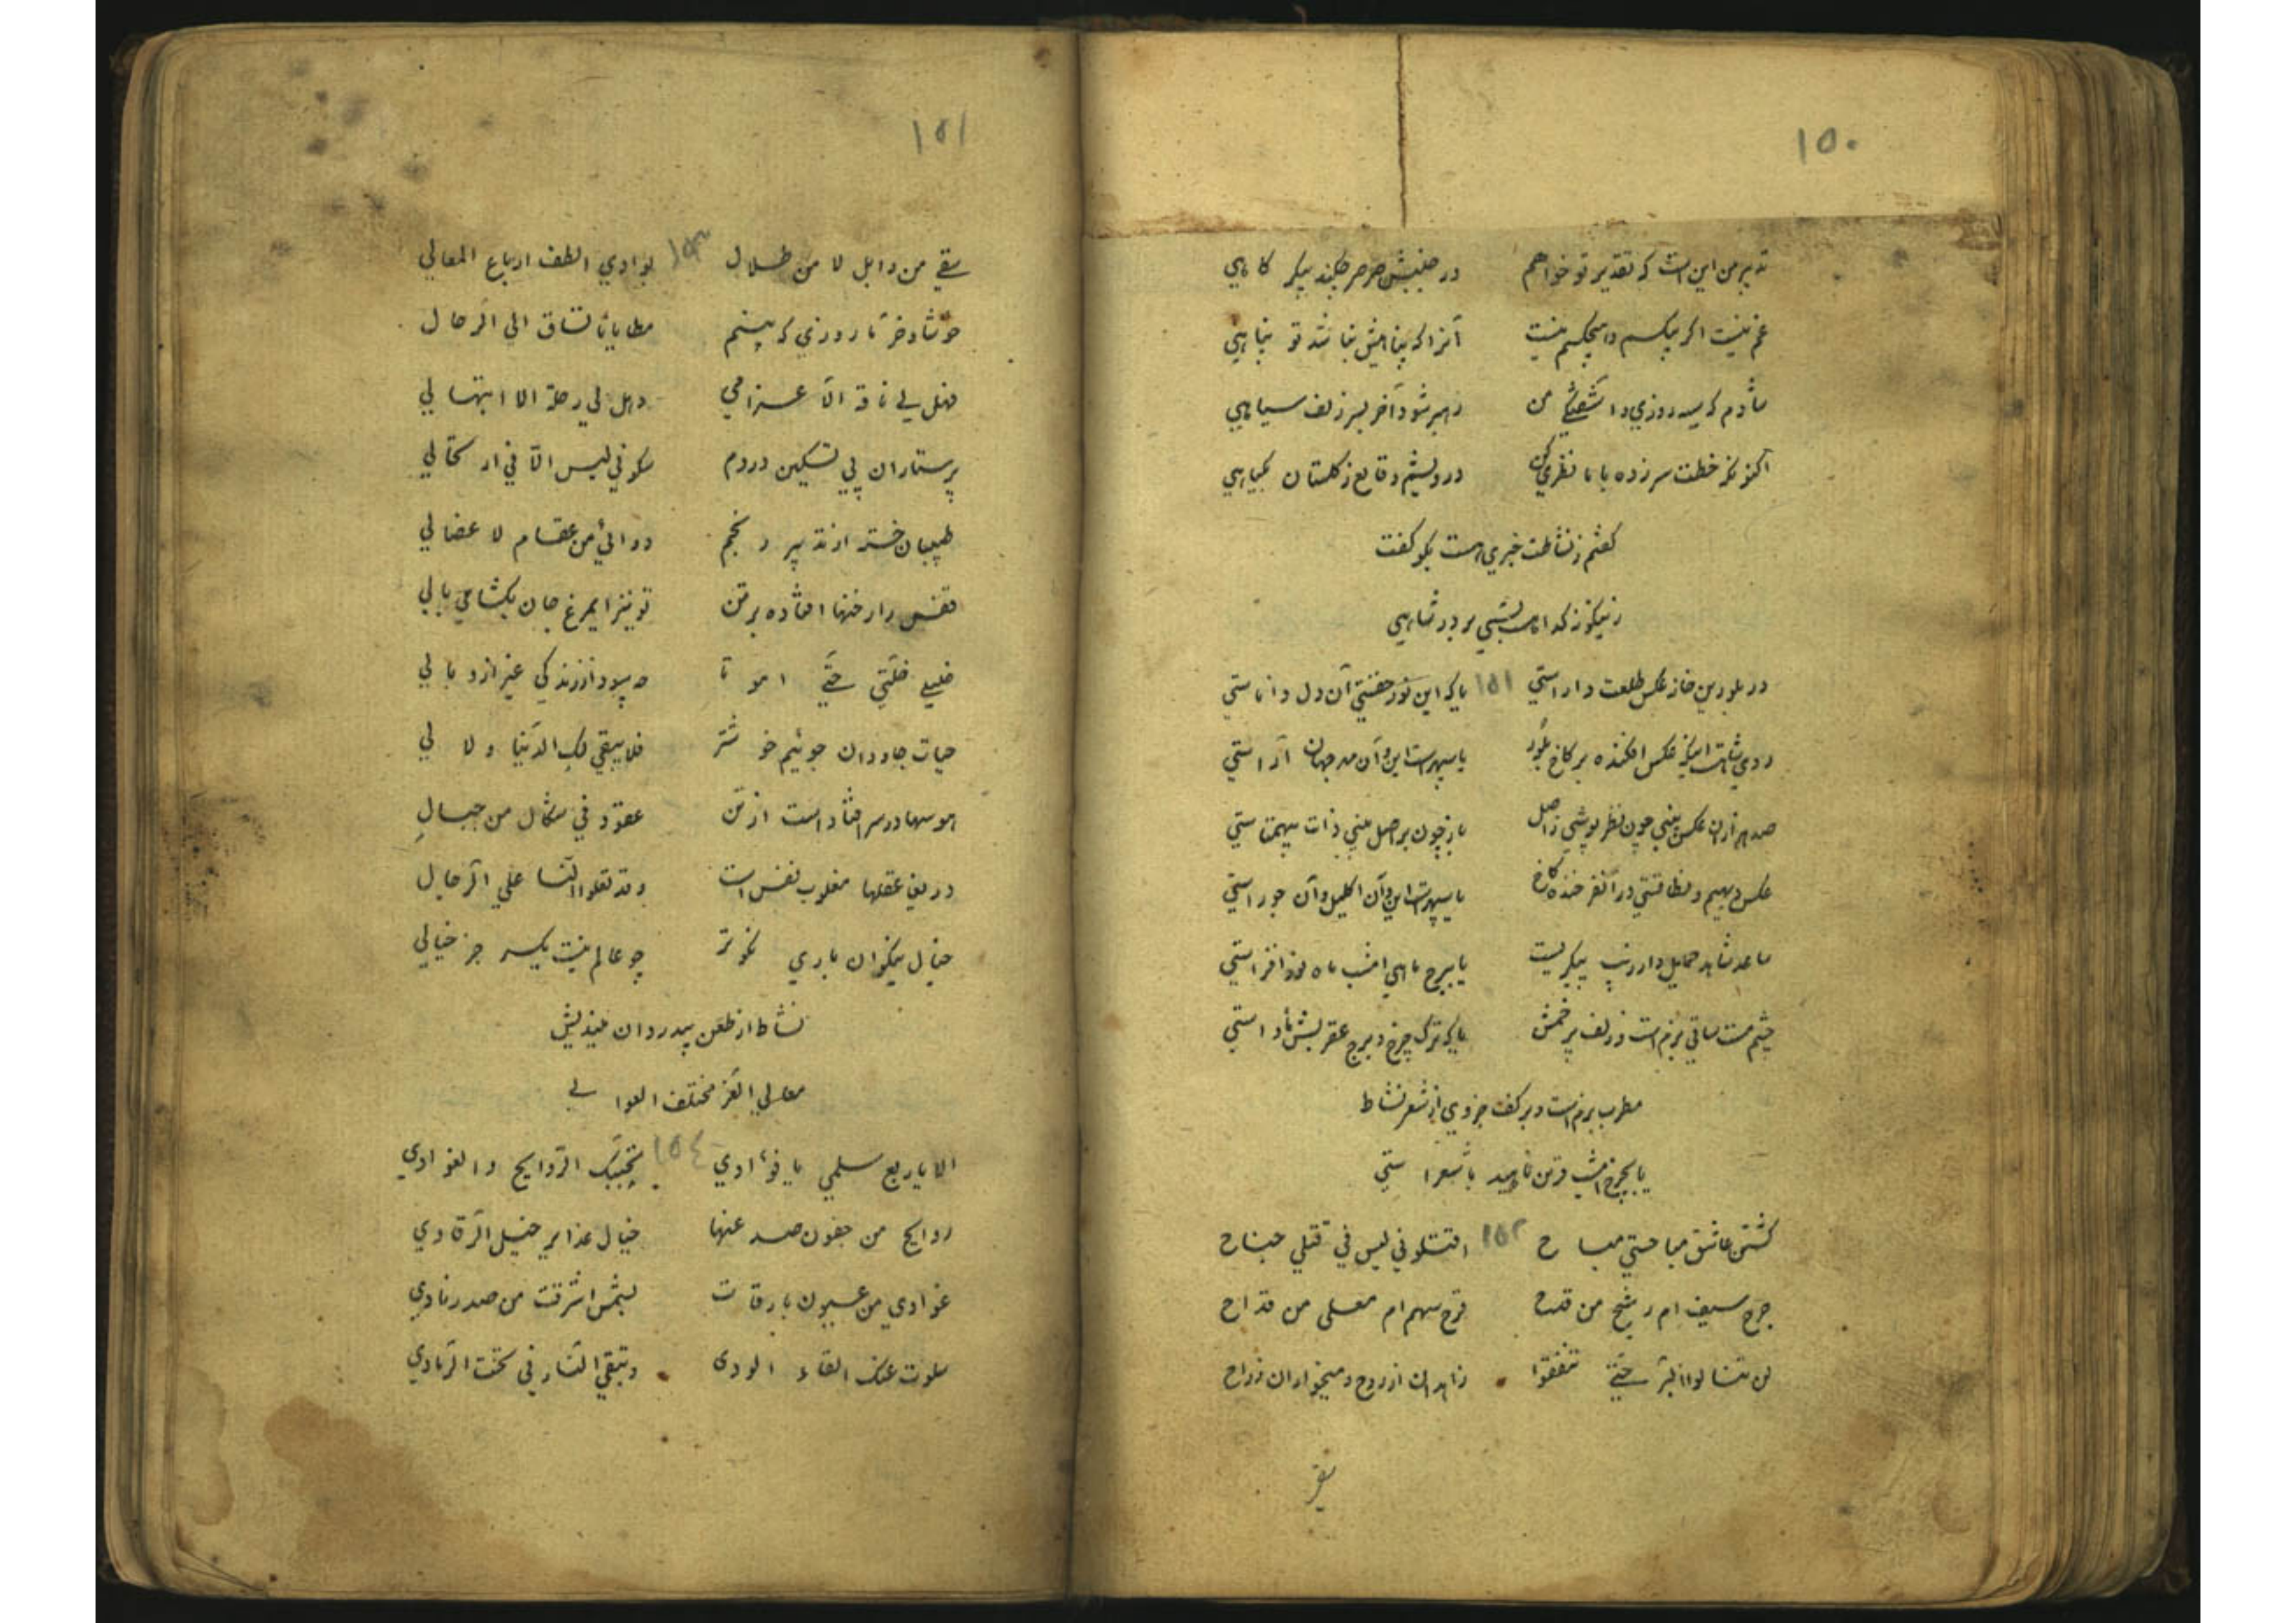 ۱۵۰
تدبیر من این است که بتقدیر تو خواهم در جنبش صرصر چکند پیکر کاهی
غم نیست اگر بیکسم و هیچکسم نیست آنرا که پناهیش نباشد تو پناهی
شادم که سیه روزی و آشفتگی من رهبر شود آخر بسر زلف سیاهی
اکنون کز خطت سر زده با ما نظری کن درویشم و قانع ز گلستان بگیاهی
گفتم ز نشاطت خبری هست بگو گفت
زینگونه گدا هست بسی بر در شاهی
در بلورین خانه عکس طلعت داراستی ۱۵۱ یا که این نور حقستی آن دل داناستی
روی شاهست اینکه عکس افکنده بر کاخ بلور یا سپهرست این و آن مهر جهان آراستی
صد هزاران عکس بینی چون نظر پوشی ز اصل باز چون بر اصل بینی ذات بیهمتاستی
عکس دیهیم و نطاقستی در آن فرخنده کاخ یا سپهرست این و آن اکلیل و آن جوزاستی
ساعد شاهد حمایل دارد زیب پیکریست یا ببرج ماهی امشب ماه نور افزاستی
چشم مست ساقی بزم است و زلف پر خمش یا که ترک چرخ و برج عقربش ماواستی
مطرب بزم است و بر کف جزوی از شعر نشاط
یا بچرخ امشب قرین ناهید با شعراستی
کشتن عاشق مباحستی مباح ۱۵۲ اقتلونی لیس فی قتلی جناح
جرح سیف ام رشح من قدح قرح سهم ام معلی من قداح
لن تنالوا البر حتی تنفقوا زاهدان از روح و میخواران ز راح
۱۵۱
سقی من وابل لا من طلال ۱۵۳ بوادی الطف ارباع المعالی
خوشا و خرما روزی که بینم مطایانا تساق الی الرحال
فهل لی ناقة الا غرامی وهل لی رحلة الا ابتهالی
پرستاران پی تسکین دردم سکونی لیس الا فی ارتحالی
طبیبان خسته از تدبیر رنجم دوائی من عقام لا عضالی
قفس را رخنها افتاده بر تن تو نیز ایمرغ جان بگشای بالی
خلیلی خلتی حتی اموتا چه سود از زندگی غیر از وبالی
حیات جاودان جوئیم خوشتر فلا یبقی لک الدنیا ولا لی
هوسها در سر افتاد است از تن عقود فی شکال من حبال
دریغ عقلها مغلوب نفس است وقد تعلوا النسا علی الرجال
خیال نیکوان باری نکوتر چو عالم نیست یکسر جز خیالی
نشاط از طعن بیدردان میندیش
معالی العز مختلف العوالی
الا یا ربع سلمی یا فؤادی ۱۵٤ تحییک الروایح والغوادی
روایح من جفون صد عنها خیال عذایر خیل الرقادی
غوادی من عیون بارقات بشمس اشرقت من صدر نادی
سلوت عنک القاء الودی وتبقی النار فی تحت الرمادی